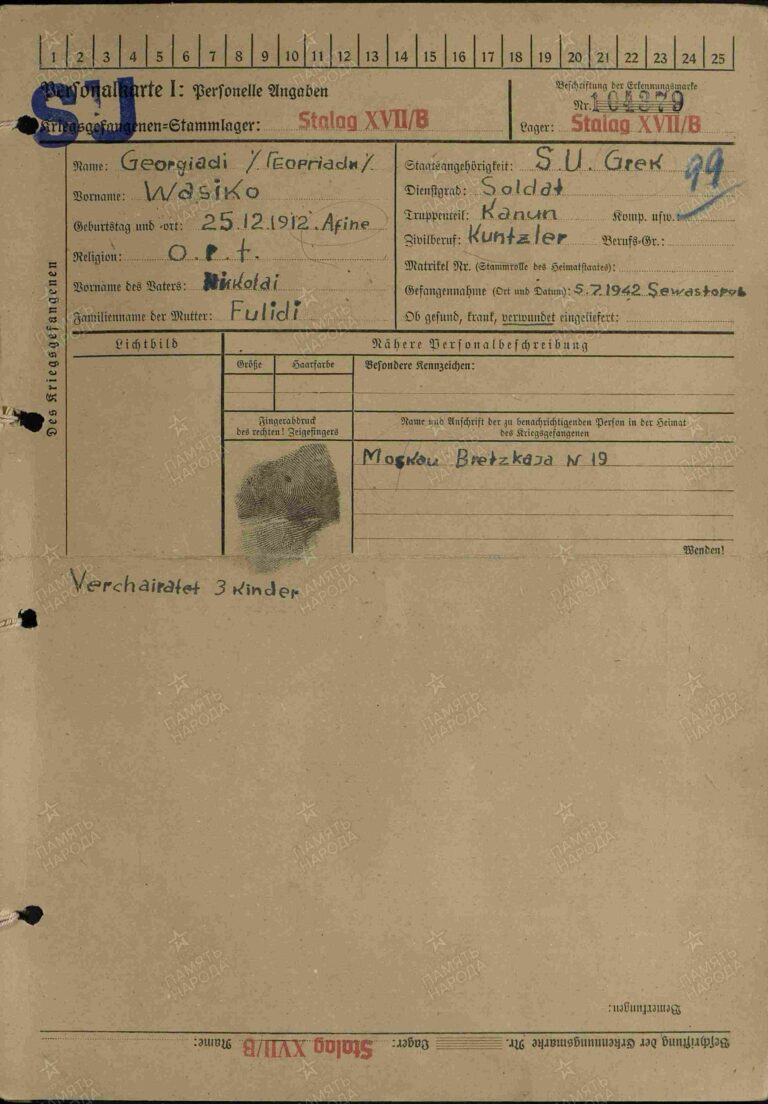 1 2 3 4 5 6 7 8 9 10 11 12 13 14 15 16 17 18 19 20 21 22 23 24 25
SU
Personalkarte I: Personelle Angaben
Beschriftung der Erkennungsmarke
Nr. 104379
Kriegsgefangenen-Stammlager: Stalag XVII/B
Lager: Stalag XVII/B
Des Kriegsgefangenen
Name: Georgiadi /Георгиади/.
Vorname: Wasiko
Geburtstag und -ort: 25.12.1912. Afine
Religion: O.r.t.
Vorname des Vaters: Nikolai
Familienname der Mutter: Fulidi
Staatsangehörigkeit: S.U. Grek
99
Dienstgrad: Soldat
Truppenteil: Kanun Komp. usw.:
Zivilberuf: Kuntzler Berufs-Gr.:
Matrikel Nr. (Stammrolle des Heimatstaates):
Gefangennahme (Ort und Datum): 5.7.1942 Sewastopol
Ob gesund, krank, verwundet eingeliefert:
Lichtbild
Nähere Personalbeschreibung
Größe
Haarfarbe
Besondere Kennzeichen:
Fingerabdruck
des rechten! Zeigefingers
Name und Anschrift der zu benachrichtigenden Person in der Heimat
des Kriegsgefangenen
Moskau Bretzkaja N 19
Wenden!
Verchairatet 3 Kinder
Bemerkungen:
Beschriftung der Erkennungsmarke Nr. Lager: Stalag XVII/B Name:
ПАМЯТЬ
НАРОДА